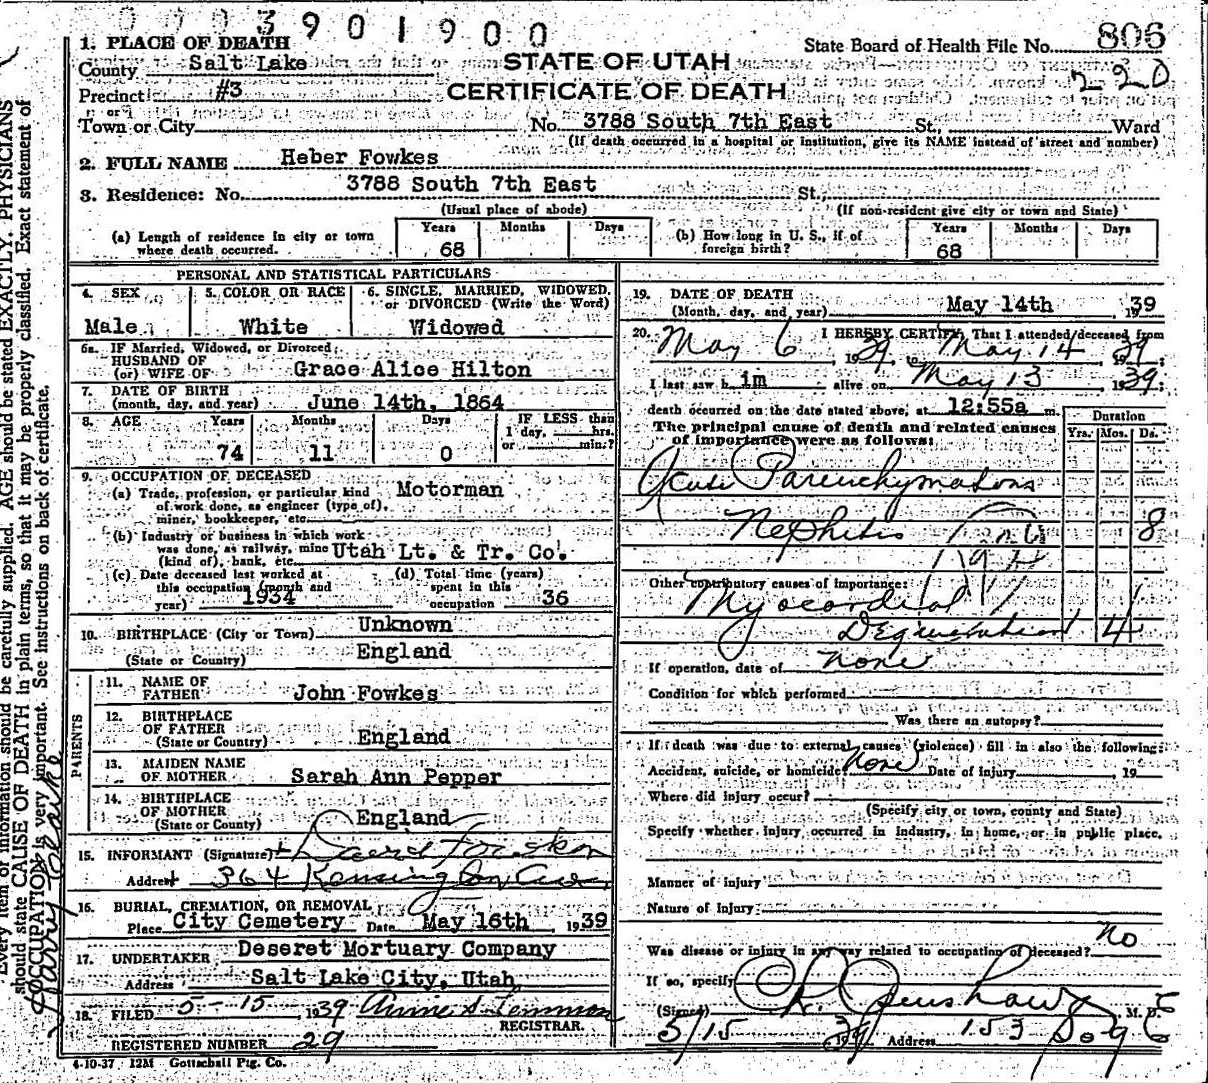 0703901900
1. PLACE OF DEATH
County Salt Lake
Precinct #3
or
Town or City
STATE OF UTAH
CERTIFICATE OF DEATH
State Board of Health File No. 806
220
No. 3788 South 7th East St., Ward
(If death occurred in a hospital or institution, give its NAME instead of street and number)
2. FULL NAME Heber Fowkes
3. Residence: No. 3788 South 7th East St.,
(Usual place of abode) (If non-resident give city or town and State)
(a) Length of residence in city or town where death occurred. Years 68 Months Days
(b) How long in U. S., if of foreign birth? Years 68 Months Days
PERSONAL AND STATISTICAL PARTICULARS
4. SEX Male
5. COLOR OR RACE White
6. SINGLE, MARRIED, WIDOWED, or DIVORCED (Write the Word) Widowed
6a. IF Married, Widowed, or Divorced
HUSBAND OF
(or) WIFE OF Grace Alice Hilton
7. DATE OF BIRTH
(month, day, and year) June 14th, 1864
8. AGE Years 74 Months 11 Days 0 IF LESS than 1 day, hrs. or min.?
9. OCCUPATION OF DECEASED
(a) Trade, profession, or particular kind of work done, as engineer (type of), miner, bookkeeper, etc. Motorman
(b) Industry or business in which work was done, as railway, mine (kind of), bank, etc. Utah Lt. & Tr. Co.
(c) Date deceased last worked at this occupation (month and year) 1934
(d) Total time (years) spent in this occupation 36
10. BIRTHPLACE (City or Town) Unknown
(State or Country) England
PARENTS
11. NAME OF FATHER John Fowkes
12. BIRTHPLACE OF FATHER
(State or Country) England
13. MAIDEN NAME OF MOTHER Sarah Ann Pepper
14. BIRTHPLACE OF MOTHER
(State or County) England
15. INFORMANT (Signature)
Address 364 Kensington Ave.
16. BURIAL, CREMATION, OR REMOVAL
Place City Cemetery Date May 16th 1939
17. UNDERTAKER Deseret Mortuary Company
Address Salt Lake City, Utah
18. FILED 5-15, 1939
REGISTRAR.
REGISTERED NUMBER 29
4-10-37 12M Gottschall Ptg. Co.
19. DATE OF DEATH
(Month, day, and year) May 14th, 1939
20. I HEREBY CERTIFY, That I attended deceased from
May 6, 1939, to May 14, 1939;
I last saw h im alive on May 13, 1939;
death occurred on the date stated above, at 12:55a m.
The principal cause of death and related causes of importance were as follows:
Duration
Yrs. Mos. Ds.
Acute Parenchymatous
Nephritis 8
Other contributory causes of importance:
Myocardial
Degeneration 4
If operation, date of none
Condition for which performed
Was there an autopsy?
If death was due to external causes (violence) fill in also the following:
Accident, suicide, or homicide? none Date of injury, 19
Where did injury occur?
(Specify city or town, county and State)
Specify whether injury occurred in industry, in home, or in public place.
Manner of injury
Nature of injury
Was disease or injury in any way related to occupation of deceased? No
If so, specify
(Signed) M. D.
5/15 1939 Address 153 So 9 E
Every item of information should be carefully supplied. AGE should be stated EXACTLY. PHYSICIANS
should state CAUSE OF DEATH in plain terms, so that it may be properly classified. Exact statement of
OCCUPATION is very important. See instructions on back of certificate.